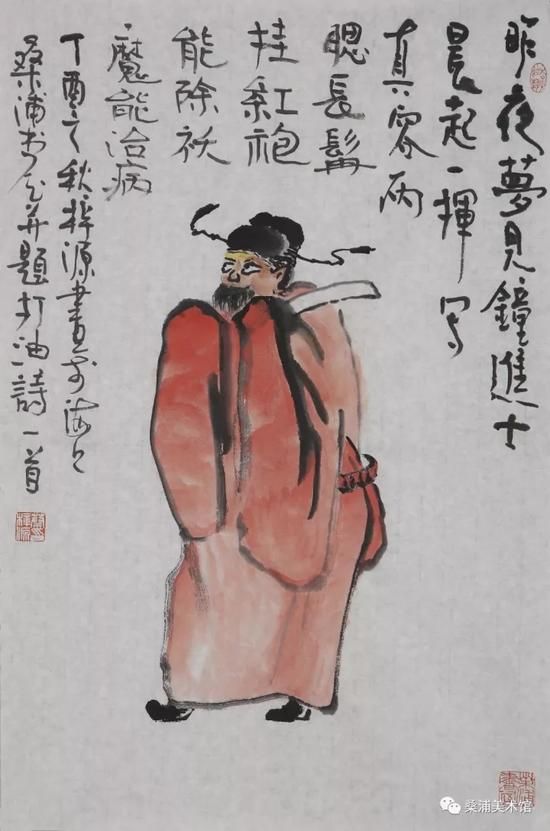 昨夜夢見鐘進士
晨起一揮写
真容両
腮長髯
挂紅袍
能除祅
魔能治病
丁酉之秋梓源畫於海上
桑浦書屋并題打油詩一首
桑浦美术馆